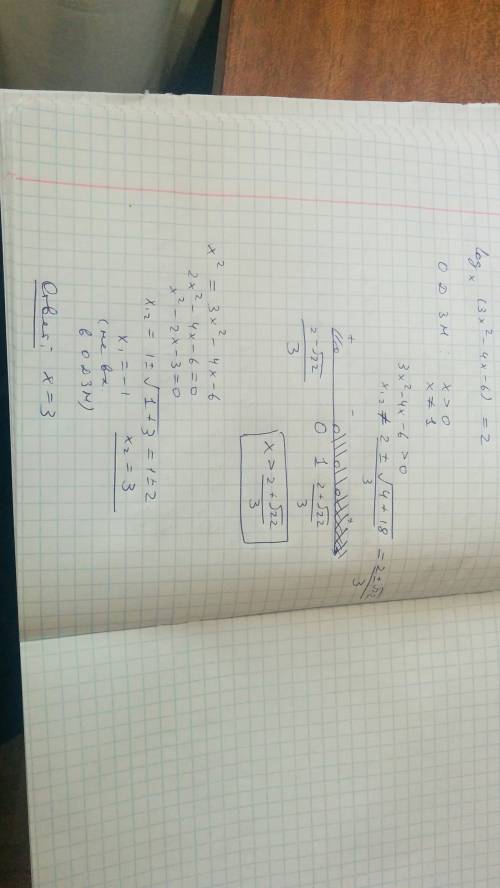 log_x (3x² - 4x - 6) = 2
ОДЗИ: x > 0
x ≠ 1
3x² - 4x - 6 > 0
x₁,₂ ≠ (2 ± √(4 + 18))/3 = (2 ± √22)/3
+ - +
(2 - √22)/3 0 1 (2 + √22)/3
x > (2 + √22)/3
x² = 3x² - 4x - 6
2x² - 4x - 6 = 0
x² - 2x - 3 = 0
x₁,₂ = 1 ± √(1 + 3) = 1 ± 2
x₁ = -1 x₂ = 3
(не вх
в ОДЗИ)
Ответ: x = 3